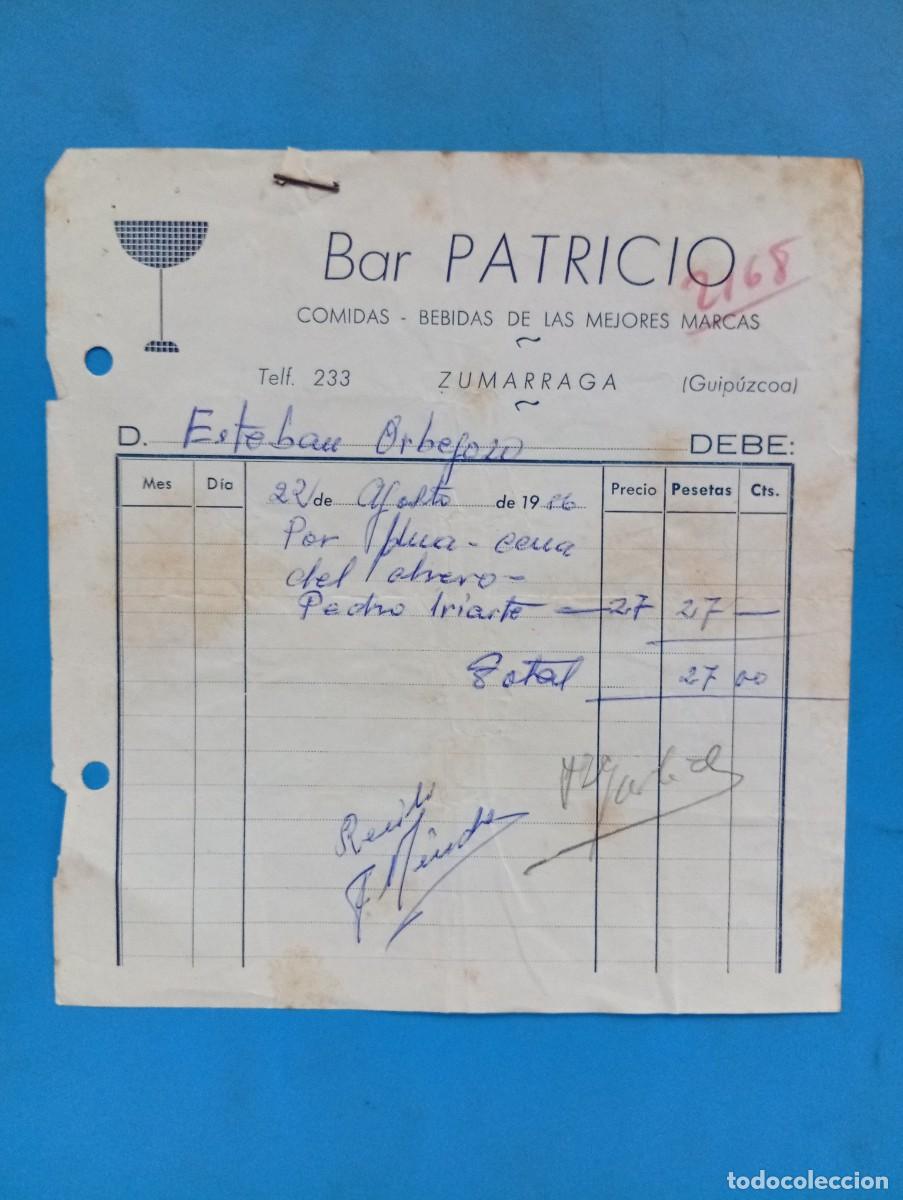 Bar PATRICIO
2168
COMIDAS - BEBIDAS DE LAS MEJORES MARCAS
Telf. 233 ZUMARRAGA (Guipúzcoa)
D. Esteban Orbegozo DEBE:
Mes Día 22 de Agosto de 1956 Precio Pesetas Cts.
Por una - cena
del obrero -
Pedro Iriarte — 27 27 —
Total 27 00
Recibí
todocoleccion